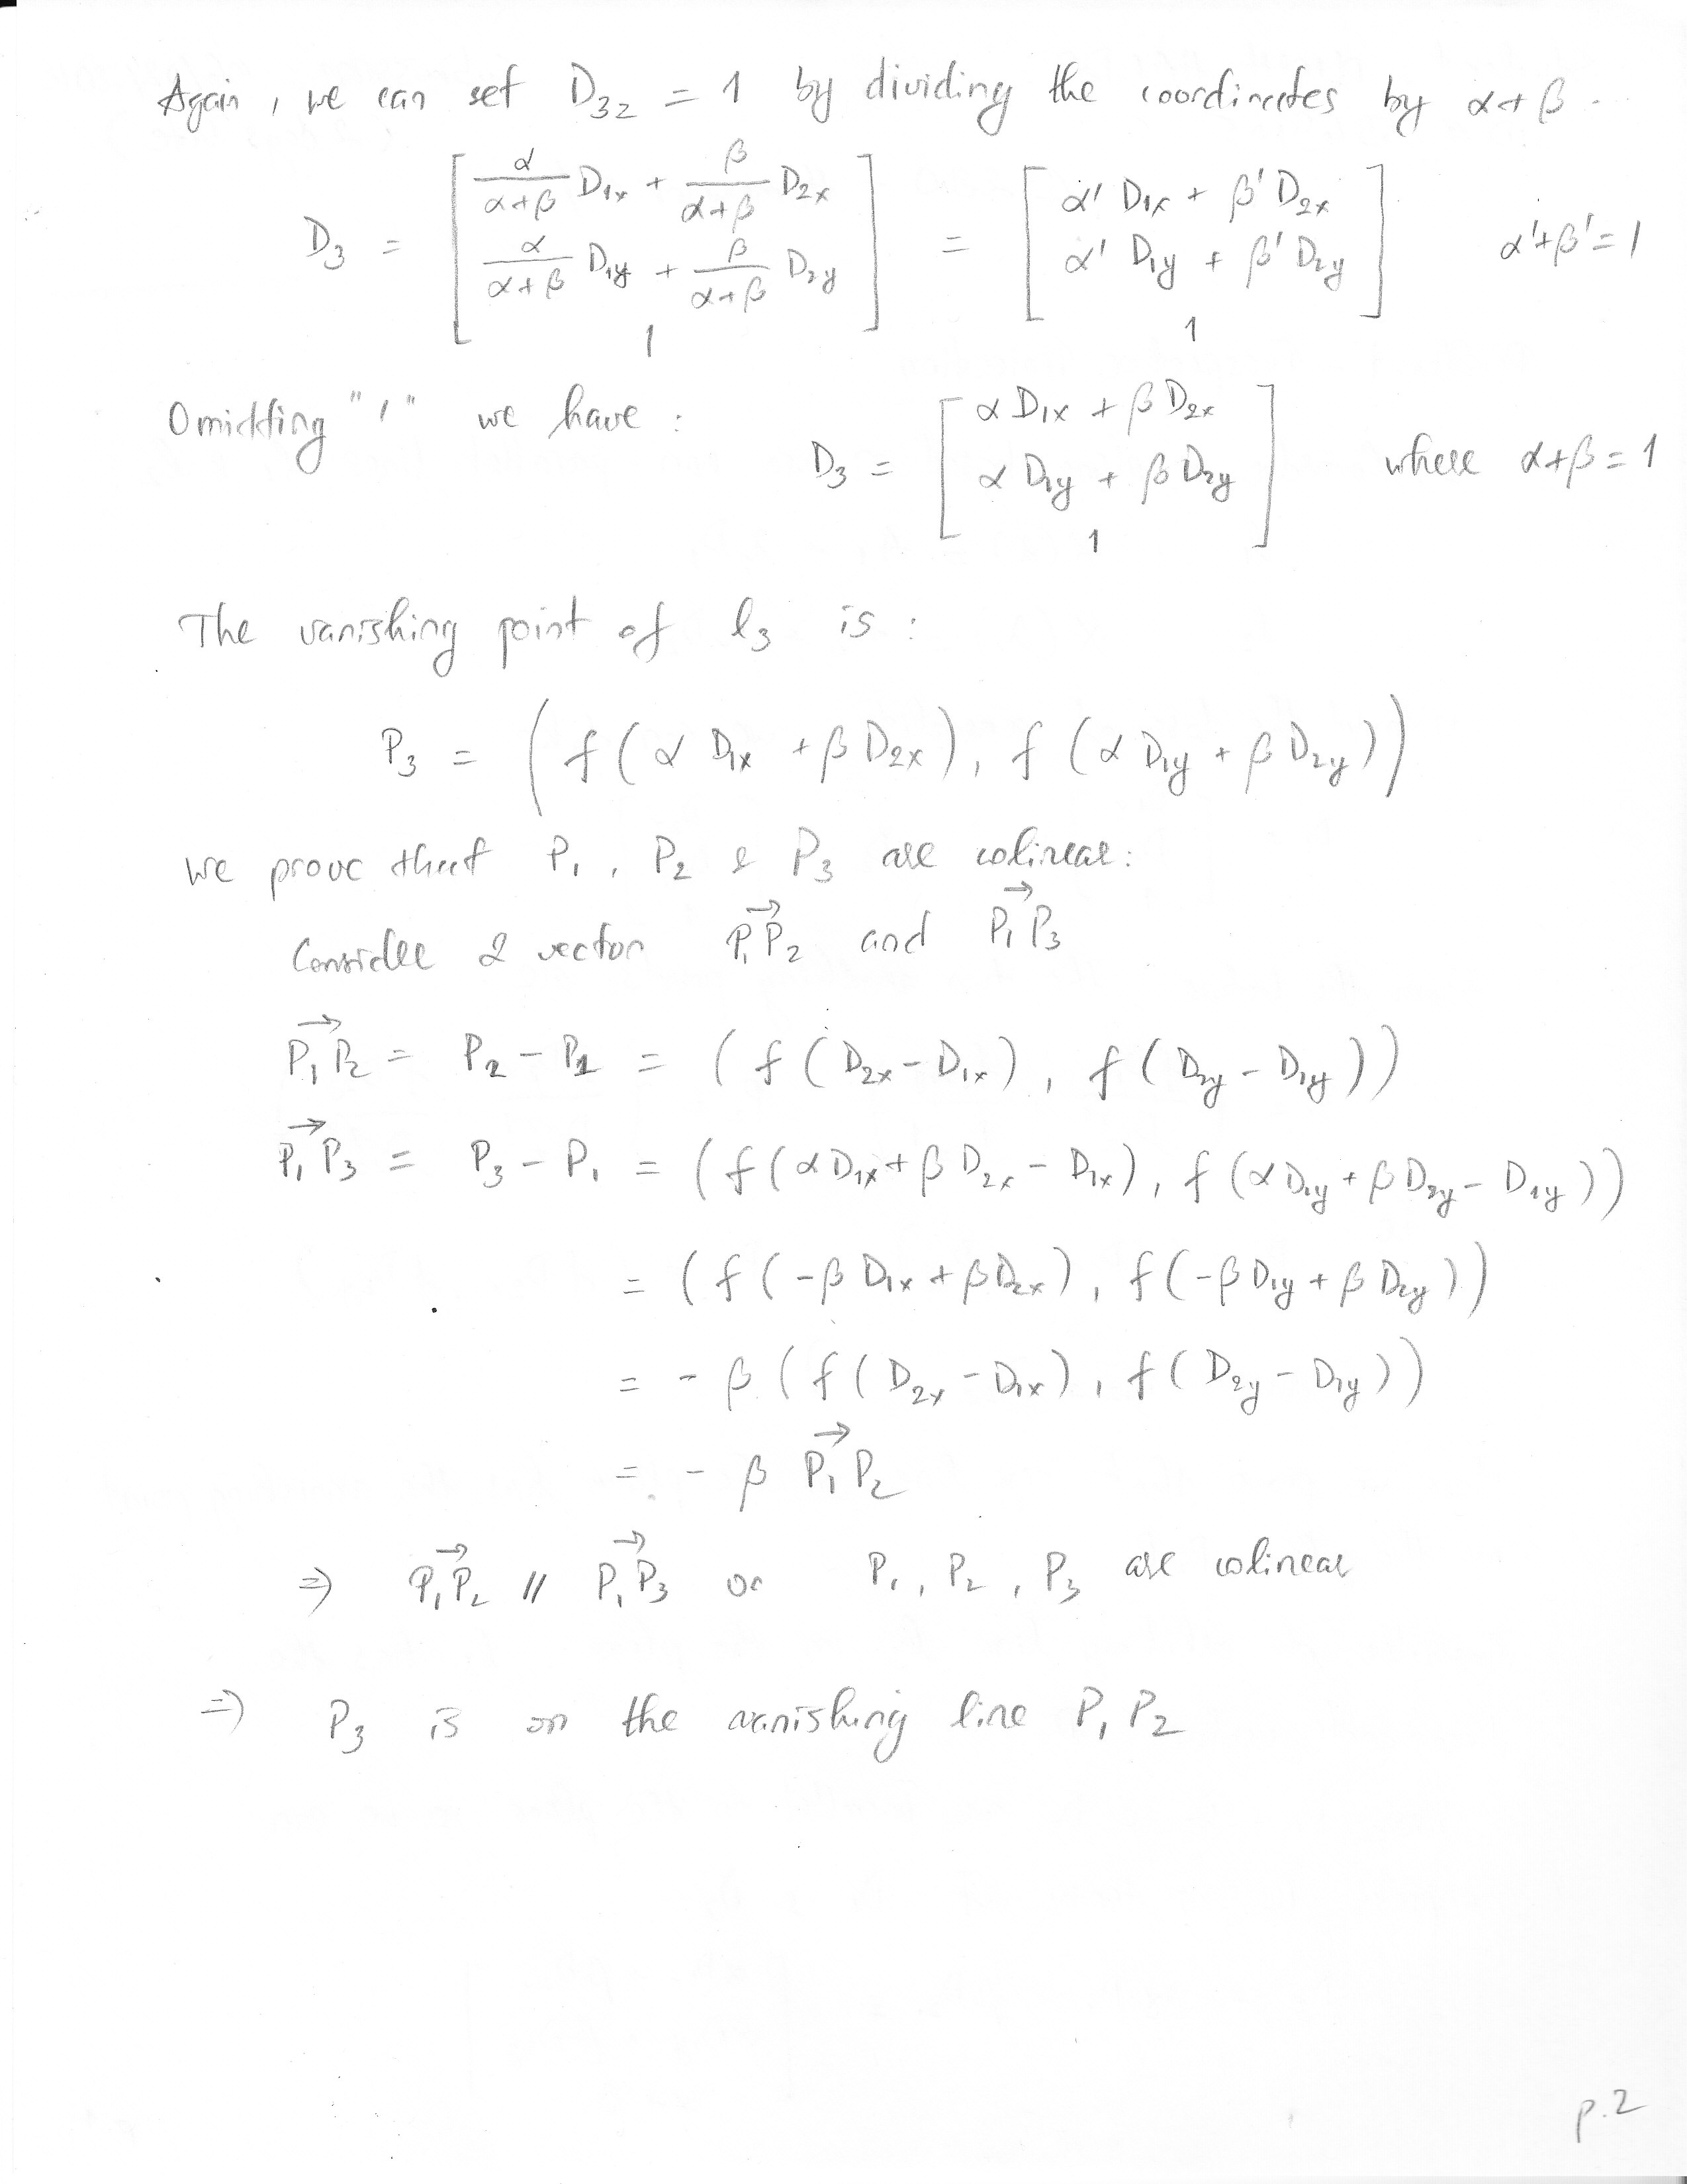 Again, we can set D₃z = 1 by dividing the coordinates by α+β.
D₃ = [ α/(α+β) D₁x + β/(α+β) D₂x ; α/(α+β) D₁y + β/(α+β) D₂y ; 1 ] = [ α' D₁x + β' D₂x ; α' D₁y + β' D₂y ; 1 ] α'+β'=1
Omidting "'" we have : D₃ = [ α D₁x + β D₂x ; α D₁y + β D₂y ; 1 ] where α+β = 1
The vanishing point of l₃ is :
P₃ = ( f ( α D₁x + β D₂x ), f ( α D₁y + β D₂y ) )
we prove that P₁, P₂ & P₃ are colinear:
Consider 2 vector P₁P₂→ and P₁P₃→
P₁P₂→ = P₂ - P₁ = ( f ( D₂x - D₁x ), f ( D₂y - D₁y ) )
P₁P₃→ = P₃ - P₁ = ( f ( α D₁x + β D₂x - D₁x ), f ( α D₁y + β D₂y - D₁y ) )
= ( f ( -β D₁x + β D₂x ), f ( -β D₁y + β D₂y ) )
= - β ( f ( D₂x - D₁x ), f ( D₂y - D₁y ) )
= - β P₁P₂→
⇒ P₁P₂→ // P₁P₃→ or P₁, P₂, P₃ are colinear
⇒ P₃ is on the vanishing line P₁P₂
p.2